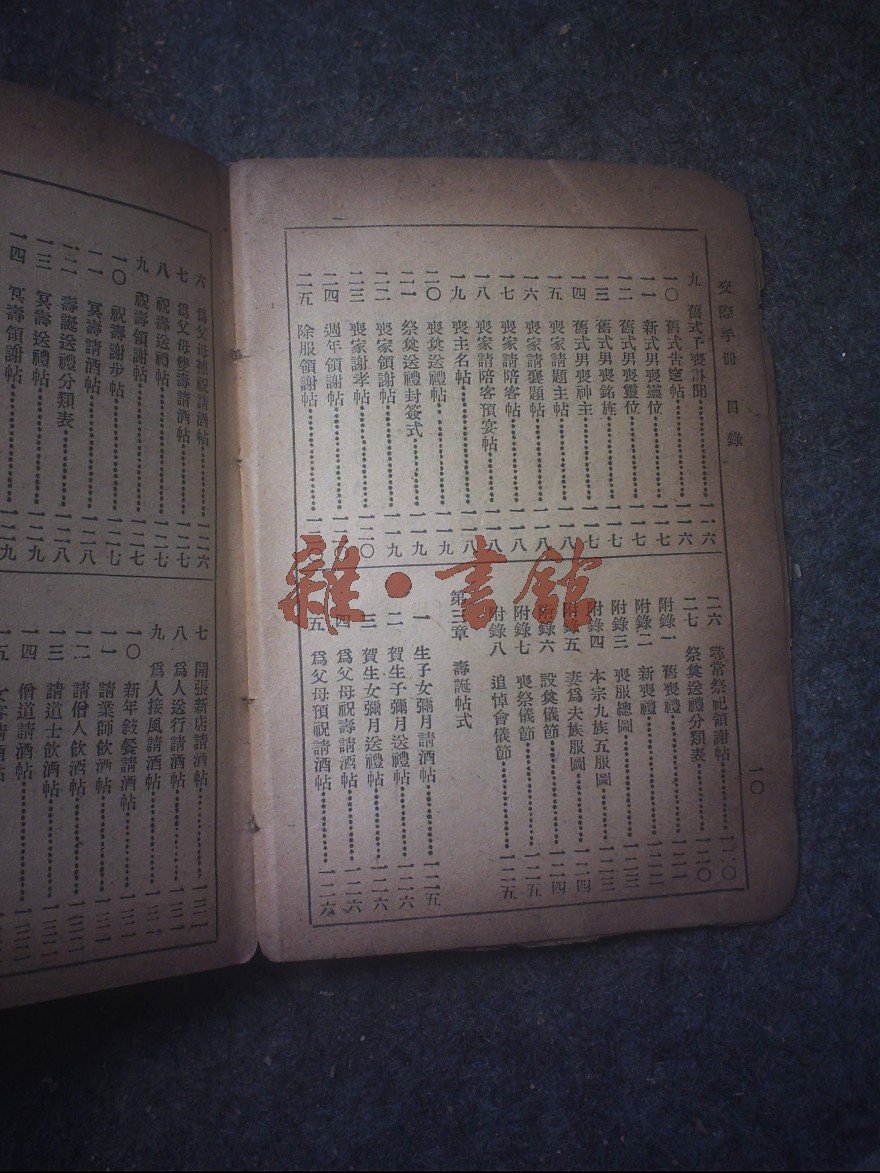 交際手册 目錄
一〇
九 舊式予喪訃聞 一一六
一〇 舊式告窆帖 一一六
一一 新式男喪靈位 一一七
一二 舊式男喪靈位 一一七
一三 舊式男喪銘旌 一一七
一四 舊式男喪神主 一一七
一五 喪家請題主帖 一一八
一六 喪家請襄題帖 一一八
一七 喪家請陪客帖 一一八
一八 喪家請陪客預宴帖 一一八
一九 喪主名帖 一一八
二〇 喪奠送禮帖 一一九
二一 祭奠送禮封簽式 一一九
二二 喪家領謝帖 一一九
二三 喪家謝孝帖 一二〇
二四 週年領謝帖 一二〇
二五 除服領謝帖 一二〇
二六 尋常祭祀領謝帖 一二〇
二七 祭奠送禮分類表 一二〇
附錄一 舊喪禮 一二一
附錄二 新喪禮 一二二
附錄三 喪服總圖 一二三
附錄四 本宗九族五服圖 一二四
附錄五 妻爲夫族服圖 一二四
附錄六 設奠儀節 一二四
附錄七 喪祭儀節 一二五
附錄八 追悼會儀節 一二五
第三章 壽誕帖式
一 生子女彌月請酒帖 一二五
二 賀生子彌月送禮帖 一二六
三 賀生女彌月送禮帖 一二六
四 爲父母祝壽請酒帖 一二六
五 爲父母預祝請酒帖 一二六
六 爲父母補祝請酒帖 一二六
七 爲父母雙壽請酒帖 一二七
八 祝壽送禮帖 一二七
九 祝壽領謝帖 一二七
一〇 祝壽謝步帖 一二七
一一 冥壽請酒帖 一二八
一二 壽誕送禮分類表 一二八
一三 冥壽送禮帖 一二九
一四 冥壽領謝帖 一二九
七 開張新店請酒帖 一三一
八 爲人送行請酒帖 一三一
九 爲人接風請酒帖 一三一
一〇 新年敍餐請酒帖
一一 請業師飲酒帖
一二 請僧人飲酒帖
一三 請道士飲酒帖
一四 僧道請酒帖
雜·書館